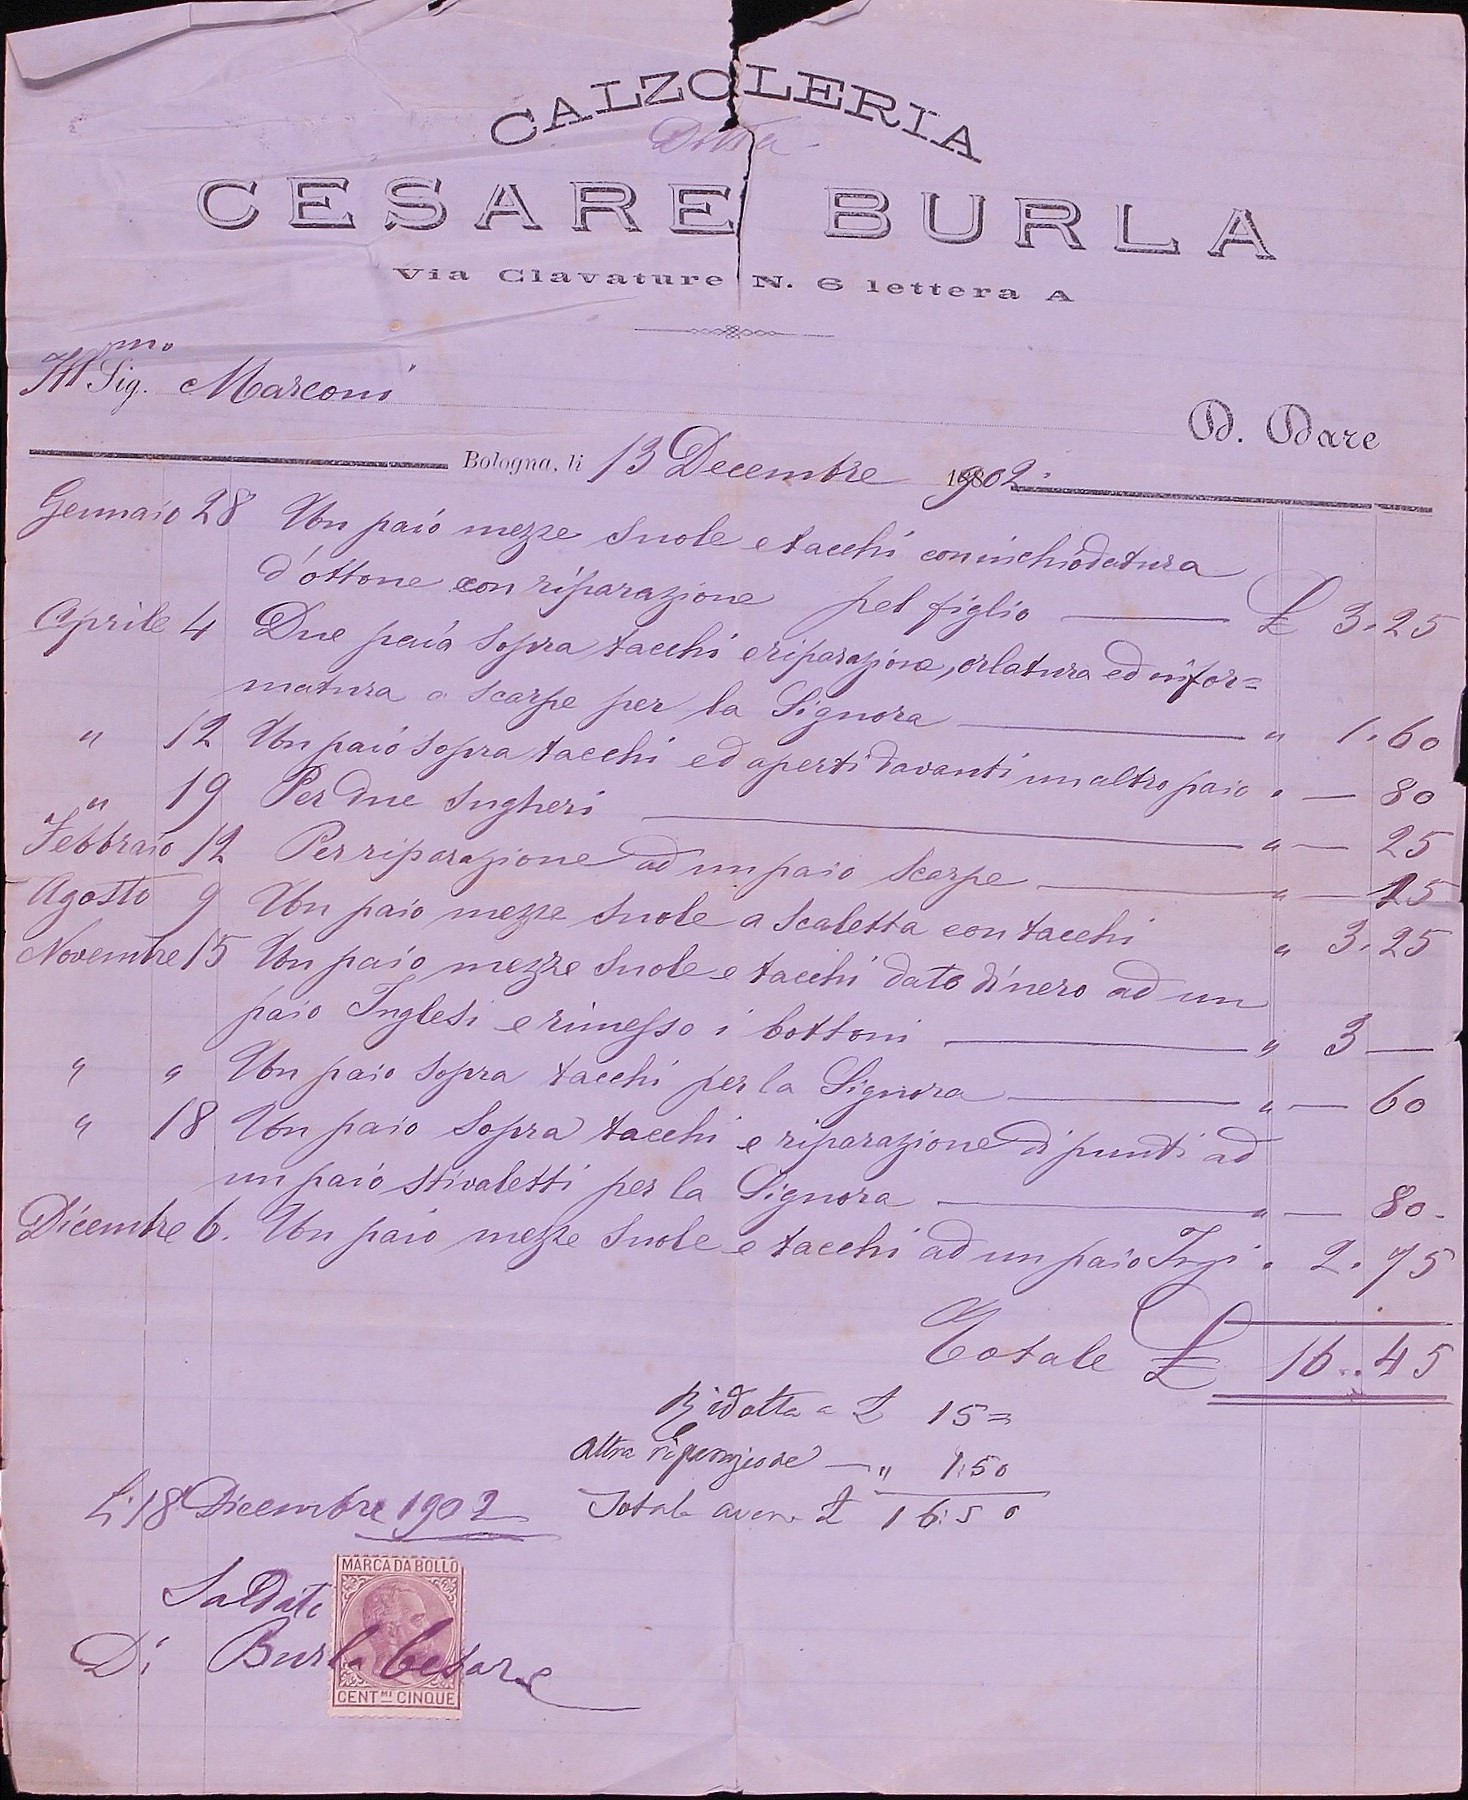 CALZOLERIA
Ditta
CESARE BURLA
Via Clavature N. 6 lettera A
Ill.mo Sig. Marconi
D. Dare
Bologna, li 13 Decembre 1902.
Gennaio 28 Un paio mezze suole e tacchi con inchiodatura
d'ottone con riparazione pel figlio £ 3.25
Aprile 4 Due paia sopra tacchi e riparazione, orlatura ed infor=
matura a scarpe per la Signora " 1.60
" 12 Un paio sopra tacchi ed aperti davanti un altro paio " — 80
" 19 Per due sugheri " — 25
Febbraio 12 Per riparazione ad un paio scarpe " — 15
Agosto 9 Un paio mezze suole a scaletta con tacchi " 3.25
Novembre 15 Un paio mezze suole e tacchi dato di nero ad un
paio Inglesi e rimesso i bottoni " 3 —
" " Un paio sopra tacchi per la Signora " — 60
" 18 Un paio sopra tacchi e riparazione di punti ad
un paio stivaletti per la Signora " — 80.
Dicembre 6. Un paio mezze suole e tacchi ad un paio " 2.75
Totale £ 16.45
Ridotta a £ 15=
Altra riparazione — " 1.50
Totale £ 16.50
Li 18 Dicembre 1902
Saldato
Di Burla Cesare
MARCA DA BOLLO
CENT.MI CINQUE